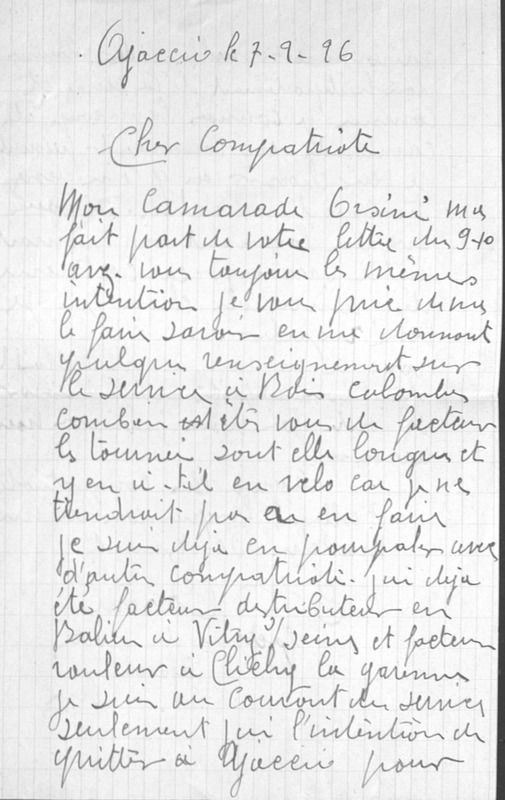 Ajaccio le 7-9-96
Cher Compatriote
Mon Camarade Orsini mas
fait part de votre lettre du 9-10
avez-vous toujour les mêmes
intention je vous prie de me
le faire savoir en me donnant
quelque renseignement sur
le service à Bois Colombes
combien êtes vous de facteur
les tournée sont elle longue et
y en a-t-il en velo car je ne
tiendrait pas a en faire
je suis deja en pourparler avec
d'autre compatriote. j'ai deja
été facteur distributeur en
à Vitry s/seine et facteur
rouleur à Clichy la garenne
je suis au courant du service
seulement j'ai l'intention de
quitter à Ajaccio pour